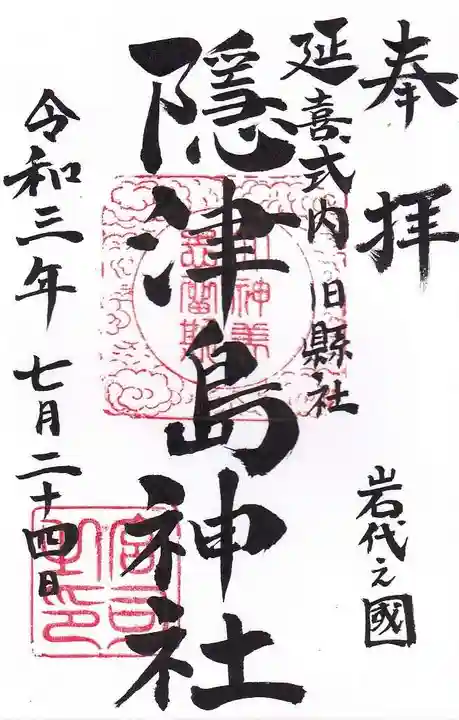 奉拝
岩代之國
延喜式内 旧縣社
隱津島神社
令和三年 七月二十四日
宮司之印